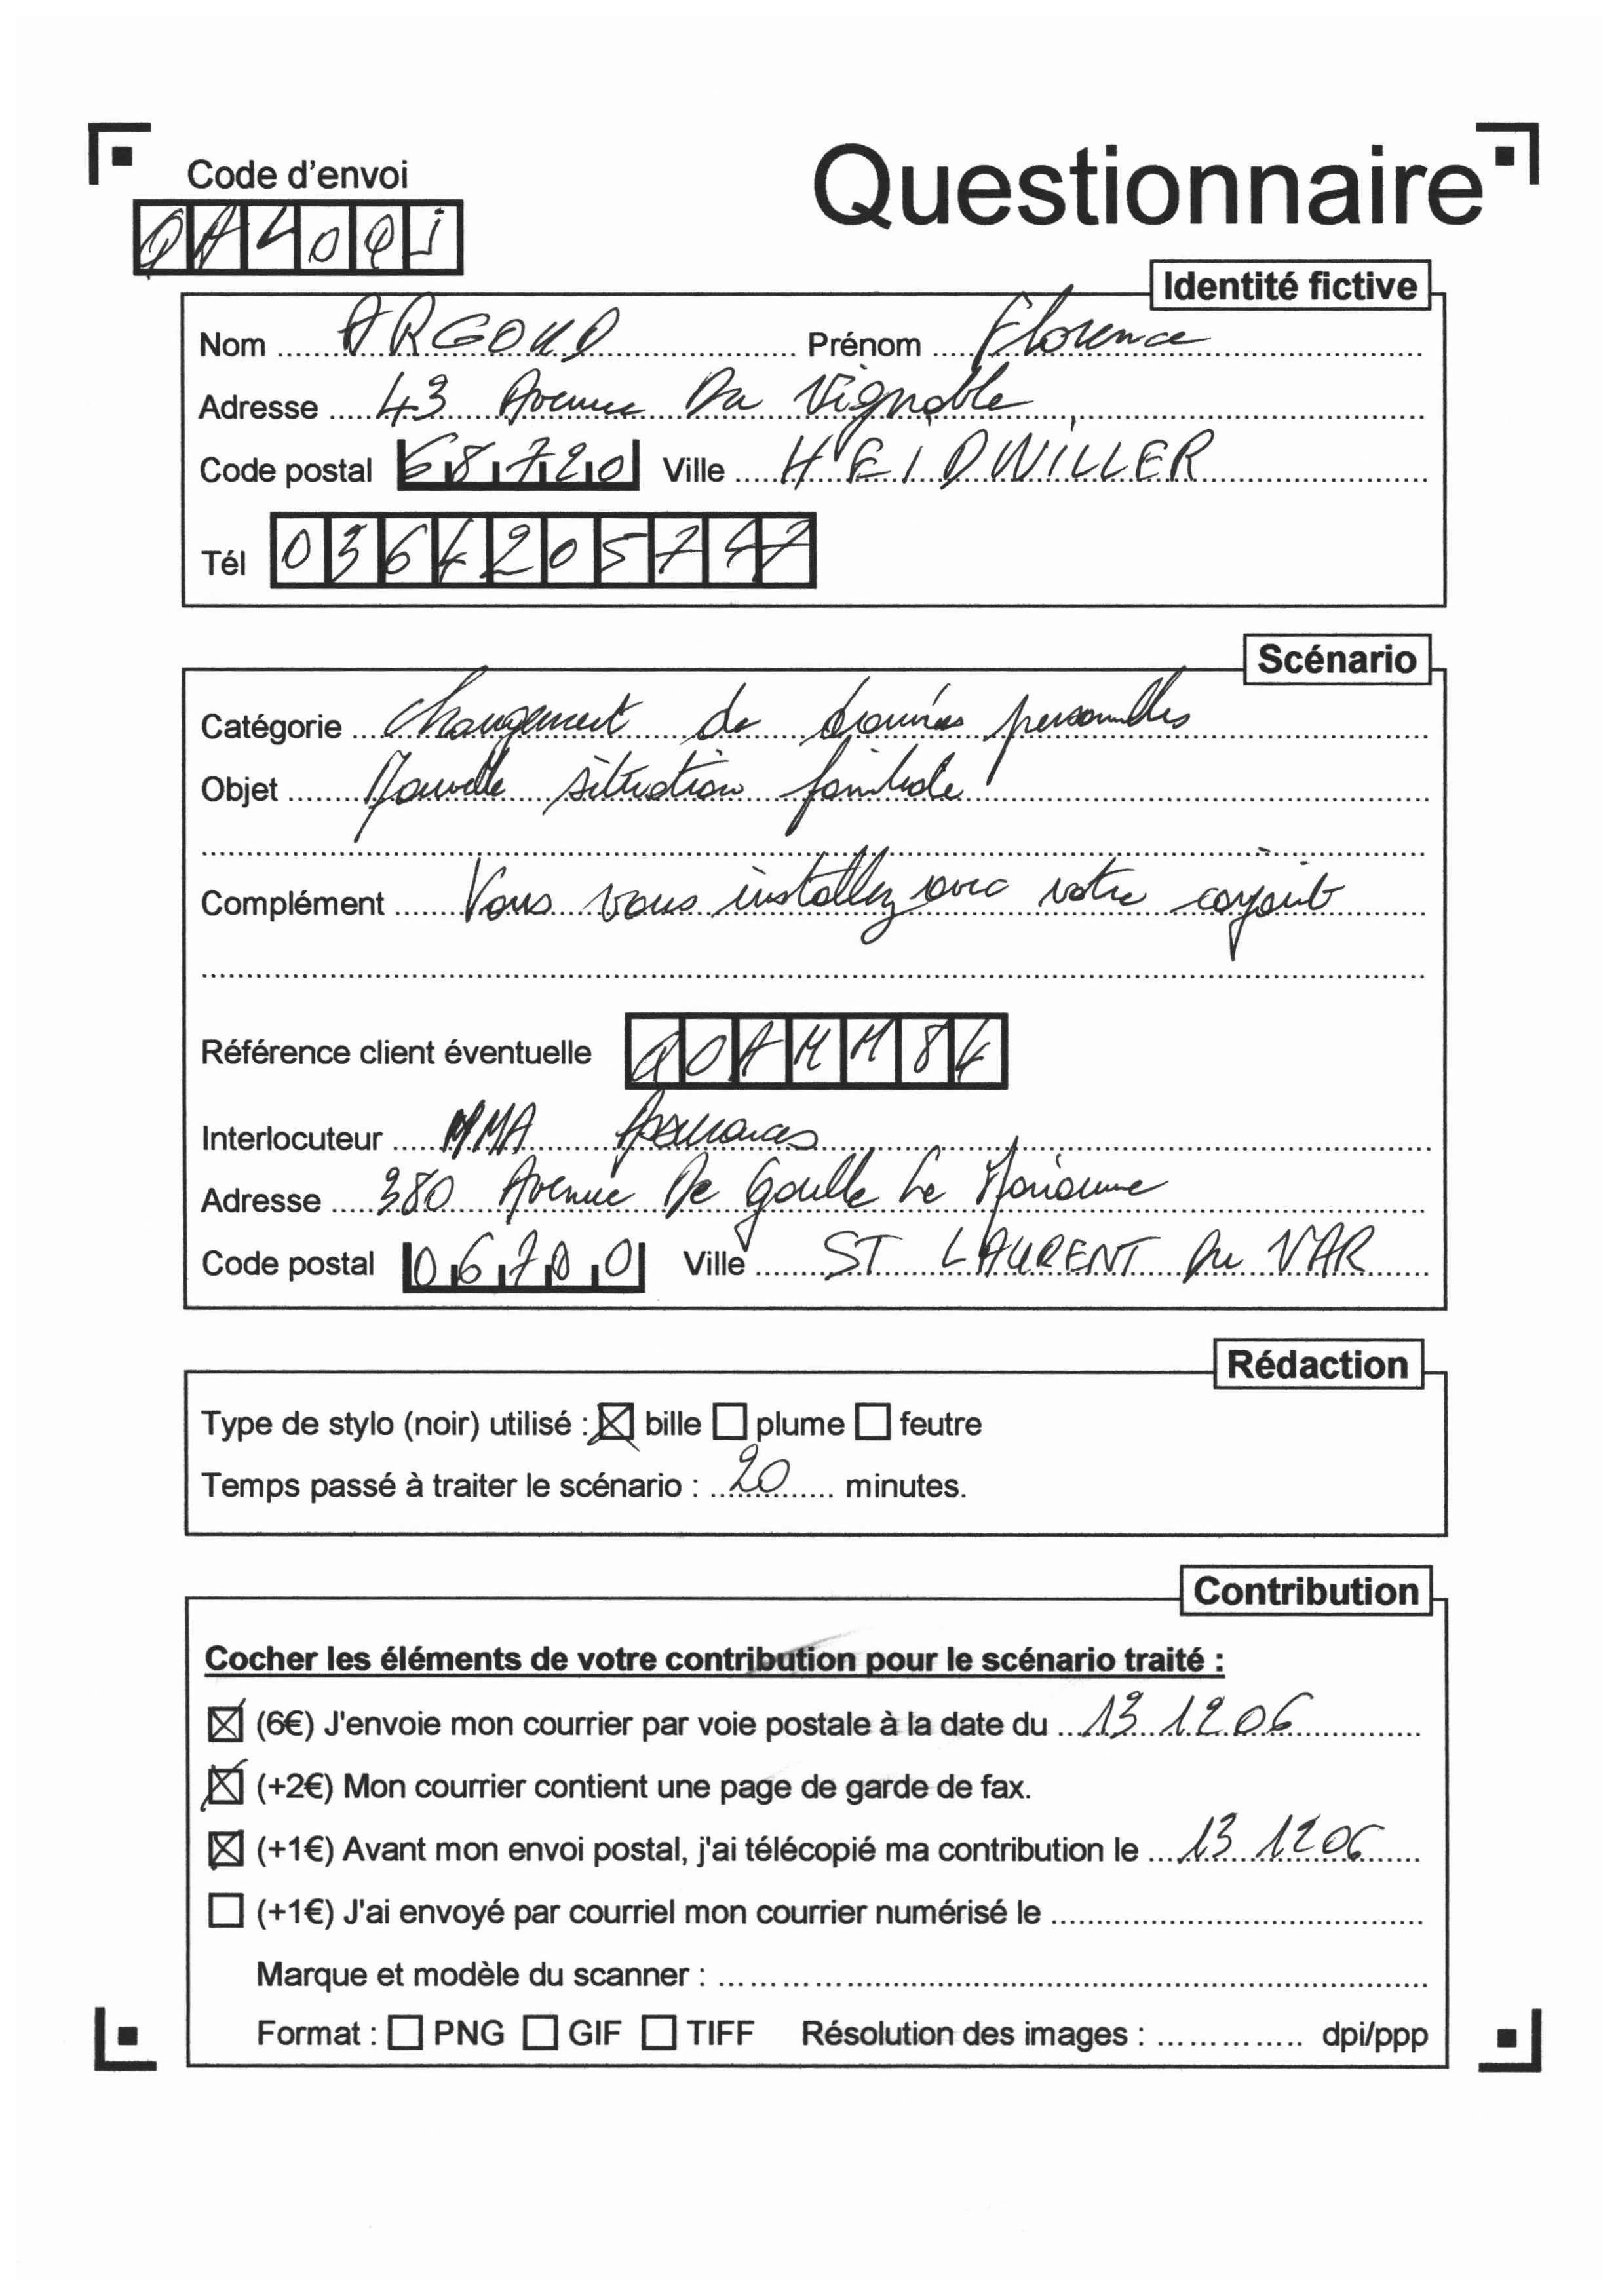 Questionnaire
Code d'envoi
Identité fictive
Nom ARGOUD Prénom Florence
Adresse 43 Avenue Du Vignoble
Code postal 68720 Ville HEIDWILLER
Tél 0364205747
Scénario
Catégorie Changement de données personnelles
Objet Nouvelle situation familiale
Complément Vous vous installez avec votre conjoint
Référence client éventuelle
Interlocuteur MMA Assurances
Adresse 380 Avenue De Gaulle Le
Code postal 06700 Ville ST LAURENT Du VAR
Rédaction
Type de stylo (noir) utilisé : ☒ bille ☐ plume ☐ feutre
Temps passé à traiter le scénario : 20 minutes.
Contribution
Cocher les éléments de votre contribution pour le scénario traité :
☒ (6€) J'envoie mon courrier par voie postale à la date du 13 12 06
☒ (+2€) Mon courrier contient une page de garde de fax.
☒ (+1€) Avant mon envoi postal, j'ai télécopié ma contribution le 13 12 06
☐ (+1€) J'ai envoyé par courriel mon courrier numérisé le
Marque et modèle du scanner :
Format : ☐ PNG ☐ GIF ☐ TIFF Résolution des images : dpi/ppp